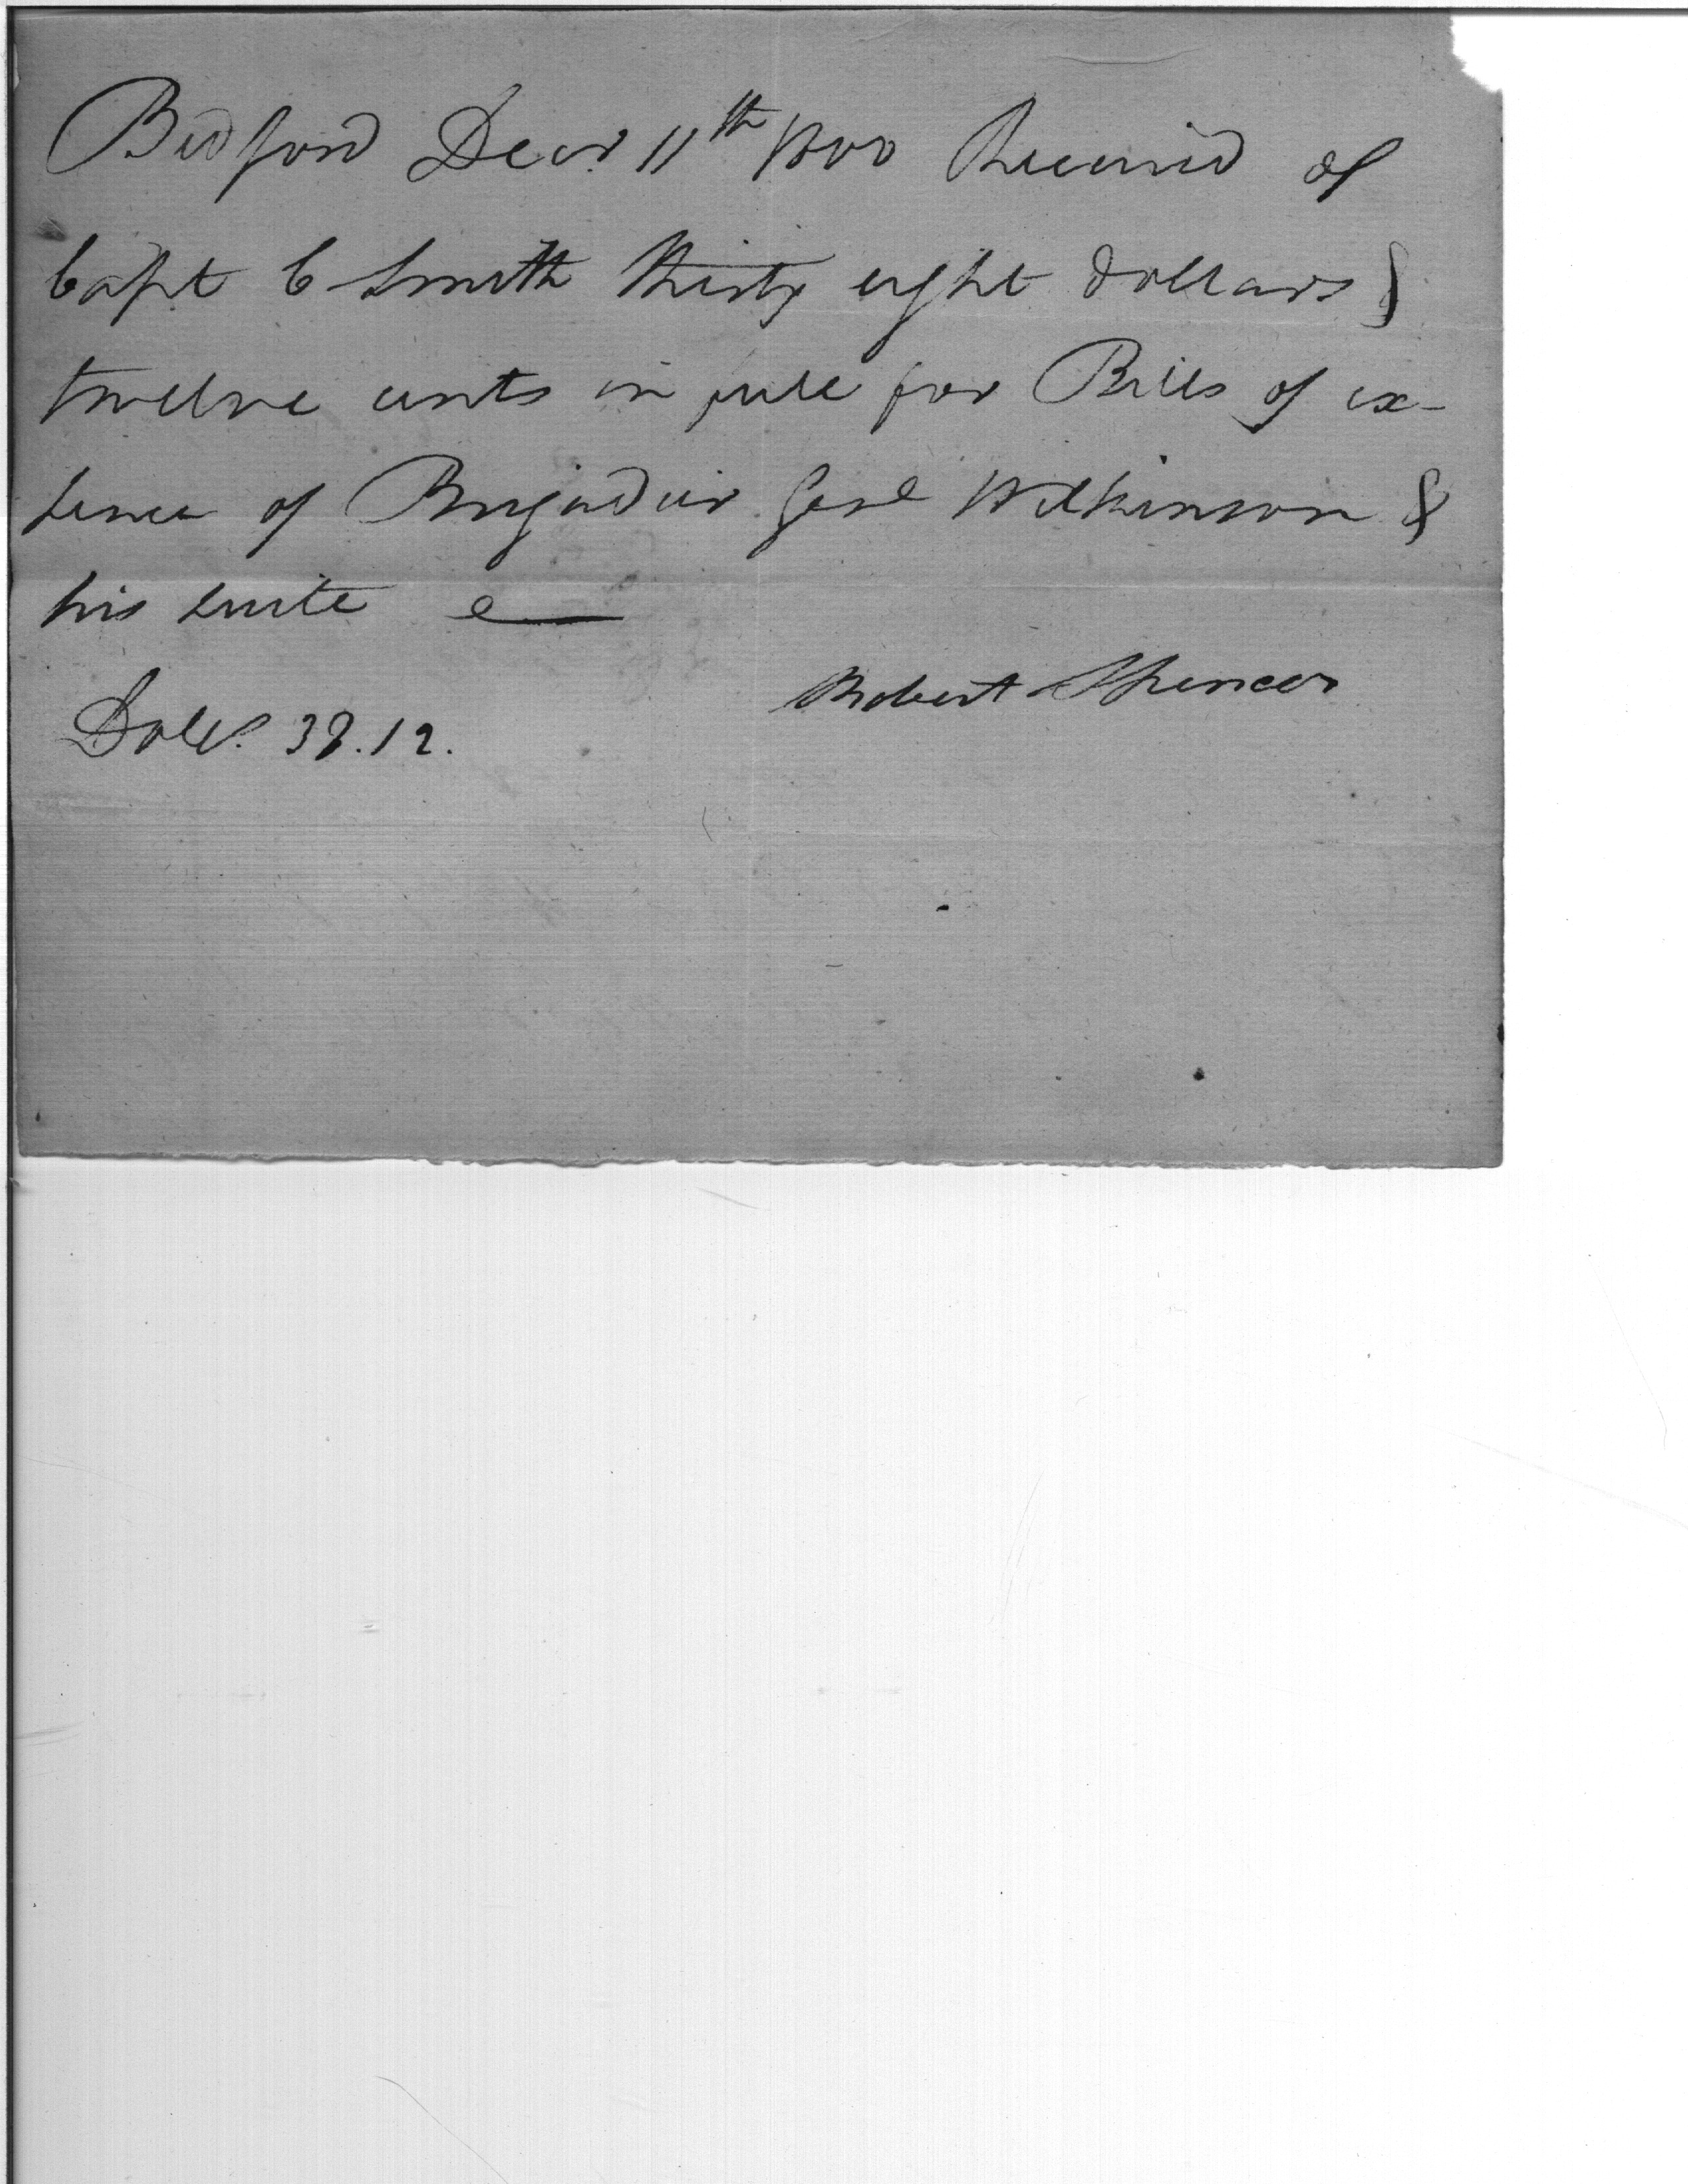 Bedford Decr. 11th 1800 Received of
Capt C Smith thirty eight dollars &
twelve cents in full for Bills of ex-
pence of Brigadier Genl Wilkinson &
his suite
Robert Spencer
Dolls. 38.12.